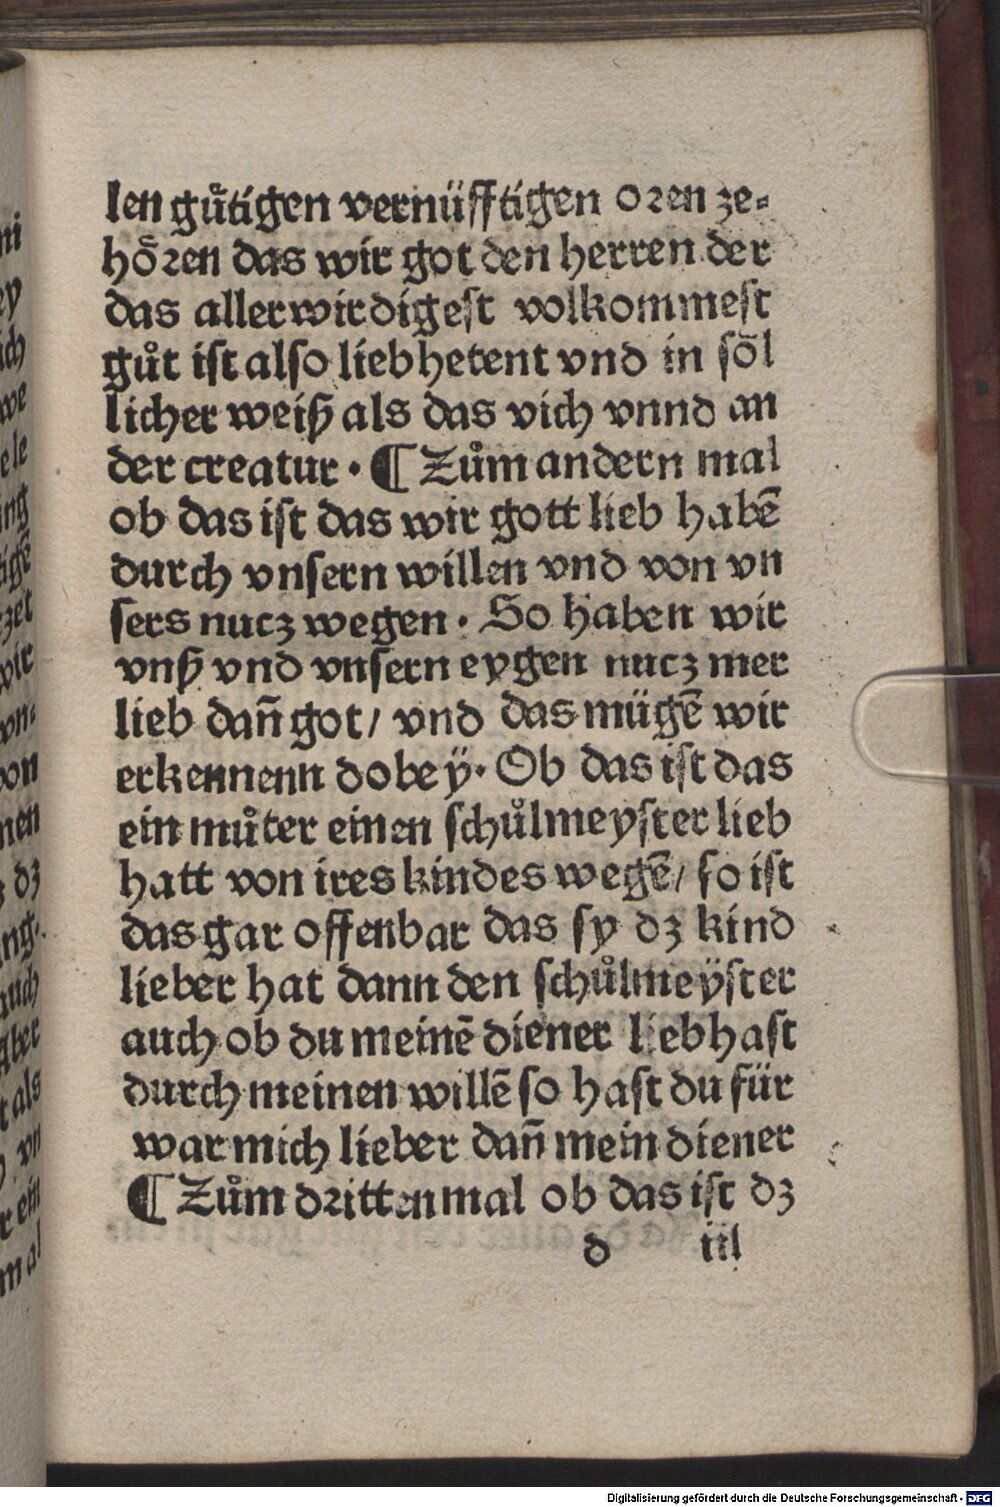 len gůtigen vernüfftigen oren ze-
hoͤren das wir got den herren der
das allerwirdigest volkommest
gůt ist also lieb hetent vnd in soͤl
licher weiß als das vich vnnd an
der creatur. ¶ Zům andern mal
ob das ist das wir gott lieb habē
durch vnsern willen vnd von vn
sers nucz wegen. So haben wir
vnß vnd vnsern eygen nucz mer
lieb dañ got/ vnd das mügē wir
erkennenn dobeÿ. Ob das ist das
ein můter einen schůlmeyster lieb
hatt von ires kindes wegē/ so ist
das gar offenbar das sy dz kind
lieber hat dann den schůlmeÿster
auch ob du meinē diener lieb hast
durch meinen willē so hast du für
war mich lieber dañ mein diener
¶ Zům dritten mal ob das ist dz
d iiI
Digitalisierung gefördert durch die Deutsche Forschungsgemeinschaft - DFG